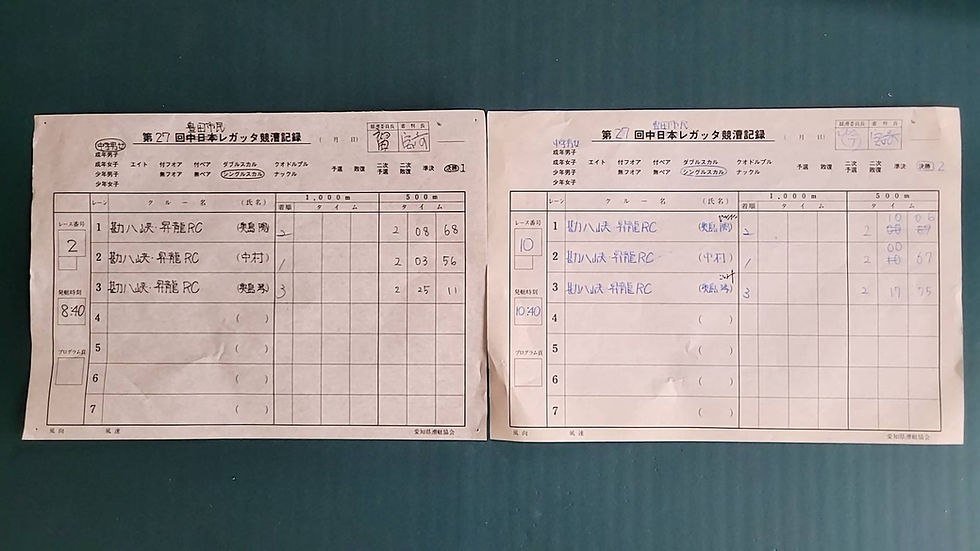 豊田市民
第27回中日本レガッタ競漕記録
( 月 日)
競漕委員長 審判長
中学男女
成年男子
成年女子 エイト 付フォア 付ペア ダブルスカル クオドルプル 予選 敗復 二次予選 二次敗復 準決 決勝1
少年男子 無フォア 無ペア シングルスカル ナックル
少年女子
レーン クルー名 (氏名) 1,000m 500m
着順 タイム タイム
レース番号
2
発艇時刻
8:40
プログラム頁
1 勘八峡・昇龍RC 2 2 08 68
2 勘八峡・昇龍RC (中村) 1 2 03 56
3 勘八峡・昇龍RC 3 2 25 11
4 ( )
5 ( )
6 ( )
7 ( )
風向 風速 愛知県漕艇協会
豊田市民
第27回中日本レガッタ競漕記録
( 月 日)
競漕委員長 審判長
中学男女
成年男子
成年女子 エイト 付フォア 付ペア ダブルスカル クオドルプル 予選 敗復 二次予選 二次敗復 準決 決勝2
少年男子 無フォア 無ペア シングルスカル ナックル
少年女子
レーン クルー名 (氏名) 1,000m 500m
着順 タイム タイム
レース番号
10
発艇時刻
10:40
プログラム頁
1 勘八峡・昇龍RC 2 2 10 06
2 勘八峡・昇龍RC (中村) 1 2 00 67
3 勘八峡・昇龍RC 3 2 17 75
4 ( )
5 ( )
6 ( )
7 ( )
風向 風速 愛知県漕艇協会